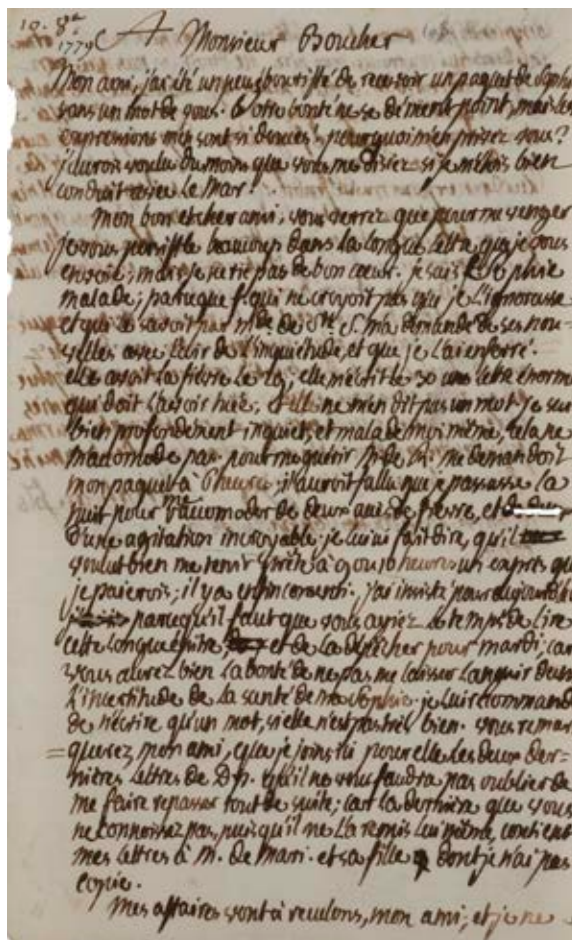 10. 8bre
1779
A Monsieur Boucher
Mon ami, j'ai été un peu bouriffé de recevoir un paquet de Sophie
sans un mot de vous. Votre bonté ne se dément point, mais les
expressions m'en sont si douces! pourquoi m'en privez vous?
j'aurois voulu du moins que vous me disiez si je m'étois bien
conduit avec le Mar.
Mon bon et cher ami, vous verrez que pour me venger
je vous persiffle beaucoup dans la longue lettre que je vous
envoie; mais je ne ris pas de bon coeur. je sais Sophie
malade; parceque f. qui ne croyoit pas que je l'ignorasse
et qui le savoit par Mde. de Ste. S. m'a demandé de ses nou-
velles avec l'air de l'inquiétude, et que je l'ai enferré.
elle avoit la fièvre le 29, elle m'écrit le 30 une lettre énorme
qui doit l'avoir tuée, et elle ne m'en dit pas un mot je suis
bien profondément inquiet, et malade moi même, cela ne
m'acomode pas. pour me guérir M. de demandoit
mon paquet à heures; il auroit fallu que je passasse la
nuit pour m'acomoder de deux ans de fièvre, et
d'une agitation incroyable je lui ai fait dire, qu'il
voulut bien me tenir prête à 9 ou 10 heures un exprès que
je paierois; il y a enfin consenti. j'ai insisté pour aujourd'hui
parcequ'il faut que vous ayiez le temps de lire
cette longue épitre, et de la dépêcher pour mardi; car
vous aurez bien la bonté de ne pas me laisser languir dans
l'incertitude de la santé de ma Sophie. je lui recommande
de n'écrire qu'un mot, si elle n'est pas très bien. vous remar-
querez, mon ami, que je joins ici pour elle les deux der-
nières lettres de Dp. qu'il ne vous faudra pas oublier de
me faire repasser tout de suite; car la dernière que vous
ne connoissez pas, puisqu'il ne l'a remis lui même contient
mes lettres à M. de Mari. et sa fille dont je n'ai pas
copie.
Mes affaires vont à reculons, mon ami; et je ne